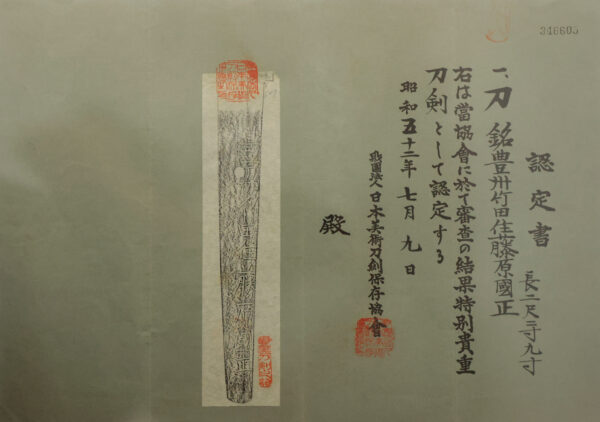 346605
認定書
一、刀 銘 豊州竹田住藤原國正
長二尺三寸九分
右は當協會に於て審査の結果特別貴重
刀剣として認定する
昭和五十二年七月九日
財團法人 日本美術刀剣保存協會
殿